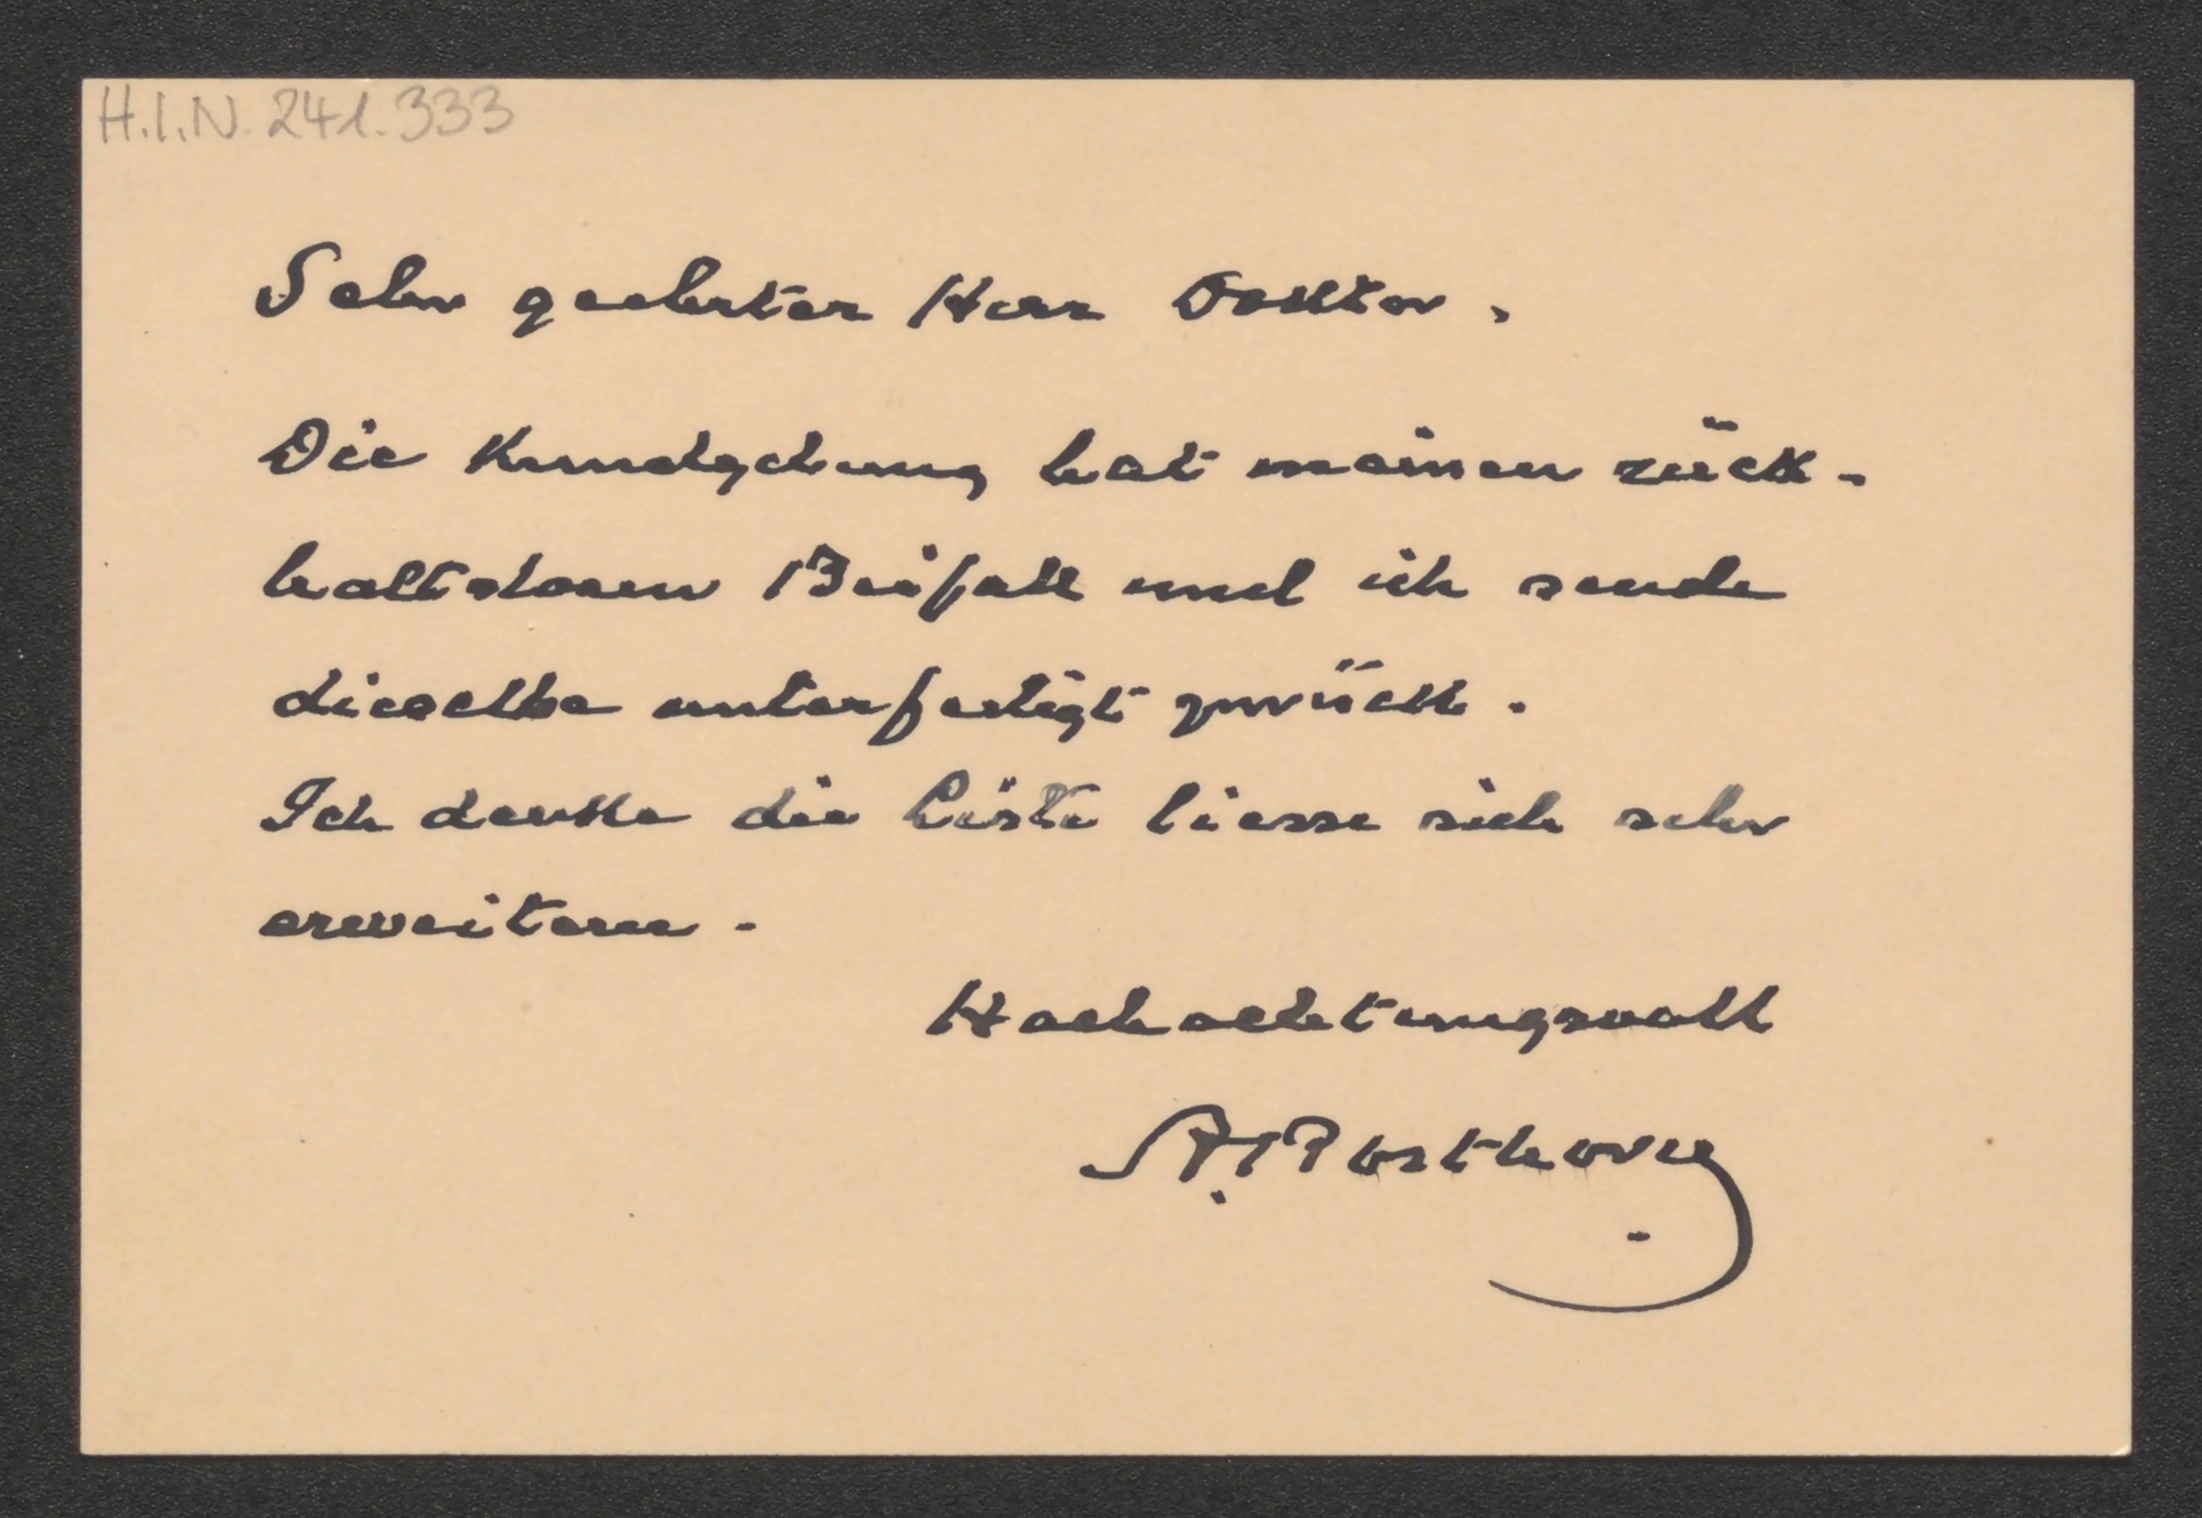 H.I.N. 241.333
Sehr geehrter Herr Doktor,
Die Kundgebung hat meinen rück-
haltslosen Beifall und ich sende
dieselbe unterfertigt zurück.
Ich denke die Liste liesse sich sehr
erweitern.
Hochachtungsvoll
A. Rosthorn